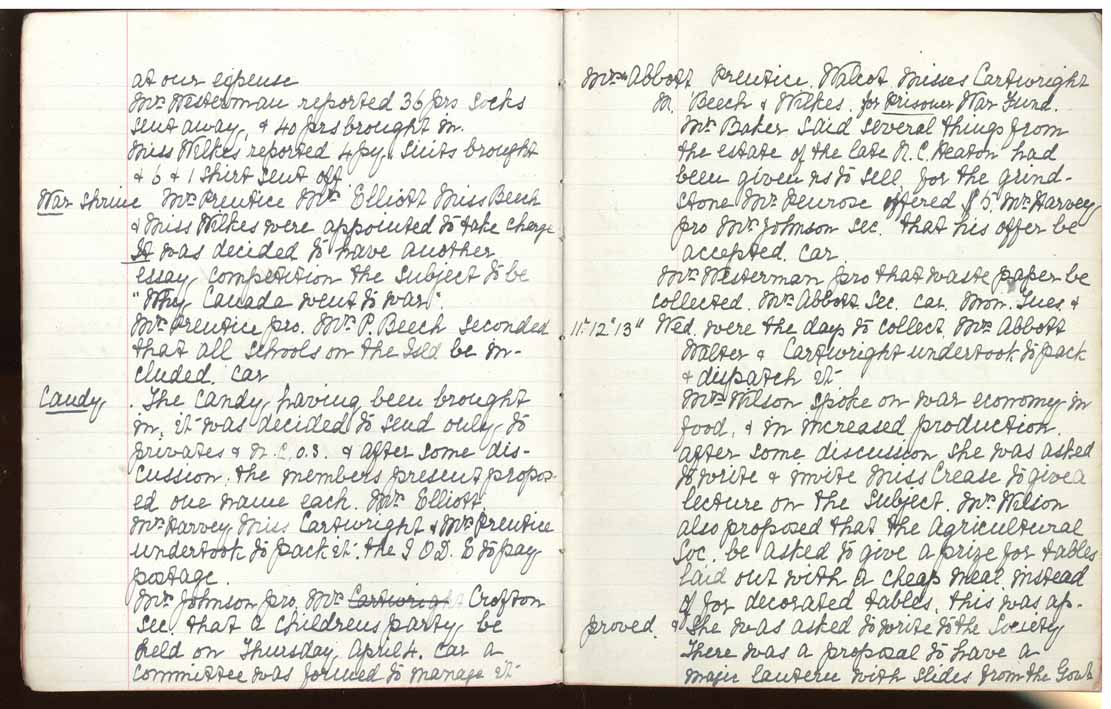 at our expense
Mrs Westerman reported 36 prs socks
sent away, & 40 prs brought in.
Miss Wilkes reported 4 py. suits brought
& 6 & 1 shirt sent off
War Shrine Mrs Prentice Mrs Elliott Miss Beech
& Miss Wilkes were appointed to take charge
It was decided to have another
essay competition the subject to be
"Why Canada went to war"
Mrs Prentice pro. Mrs P. Beech seconded
that all schools on the Isld be in-
cluded. car
Candy. The candy having been brought
in, it was decided to send only to
privates & N.C.O.S. & after some dis-
cussion, the members present propos-
ed one name each. Mrs Elliott
Mrs Harvey Miss Cartwright & Mrs Prentice
undertook to pack it. the I O D. E to pay
postage.
Mrs Johnson pro. Mrs Cartwright Crofton
Sec. that a childrens party be
held on Thursday, April 4. car a
committee was formed to manage it
Mrs Abbott Prentice, Walcot, Misses Cartwright
M. Beech & Wilkes. for Prisoner War Fund.
Mrs Baker said several things from
the estate of the late N. C. Heaton had
been given us to sell, for the grind-
stone Mr Penrose offered $5. Mrs Harvey
pro Mrs Johnson Sec. that his offer be
accepted. car.
Mrs Westerman pro that waste paper be
collected. Mrs Abbott Sec. car. Mon. Tues. &
11" 12" 13" Wed. were the days to collect. Mrs Abbott
Walter & Cartwright undertook to pack
& dispatch it
Mrs Wilson spoke on war economy in
food, & in increased production.
after some discussion she was asked
to write & invite Miss Crease to give a
lecture on the subject. Mrs Wilson
also proposed that the Agricultural
Soc. be asked to give a prize for tables
laid out with a cheap meal instead
of for decorated tables, this was ap-
proved. & She was asked to write to the Society
There was a proposal to have a
magic lantern with slides from the Govt